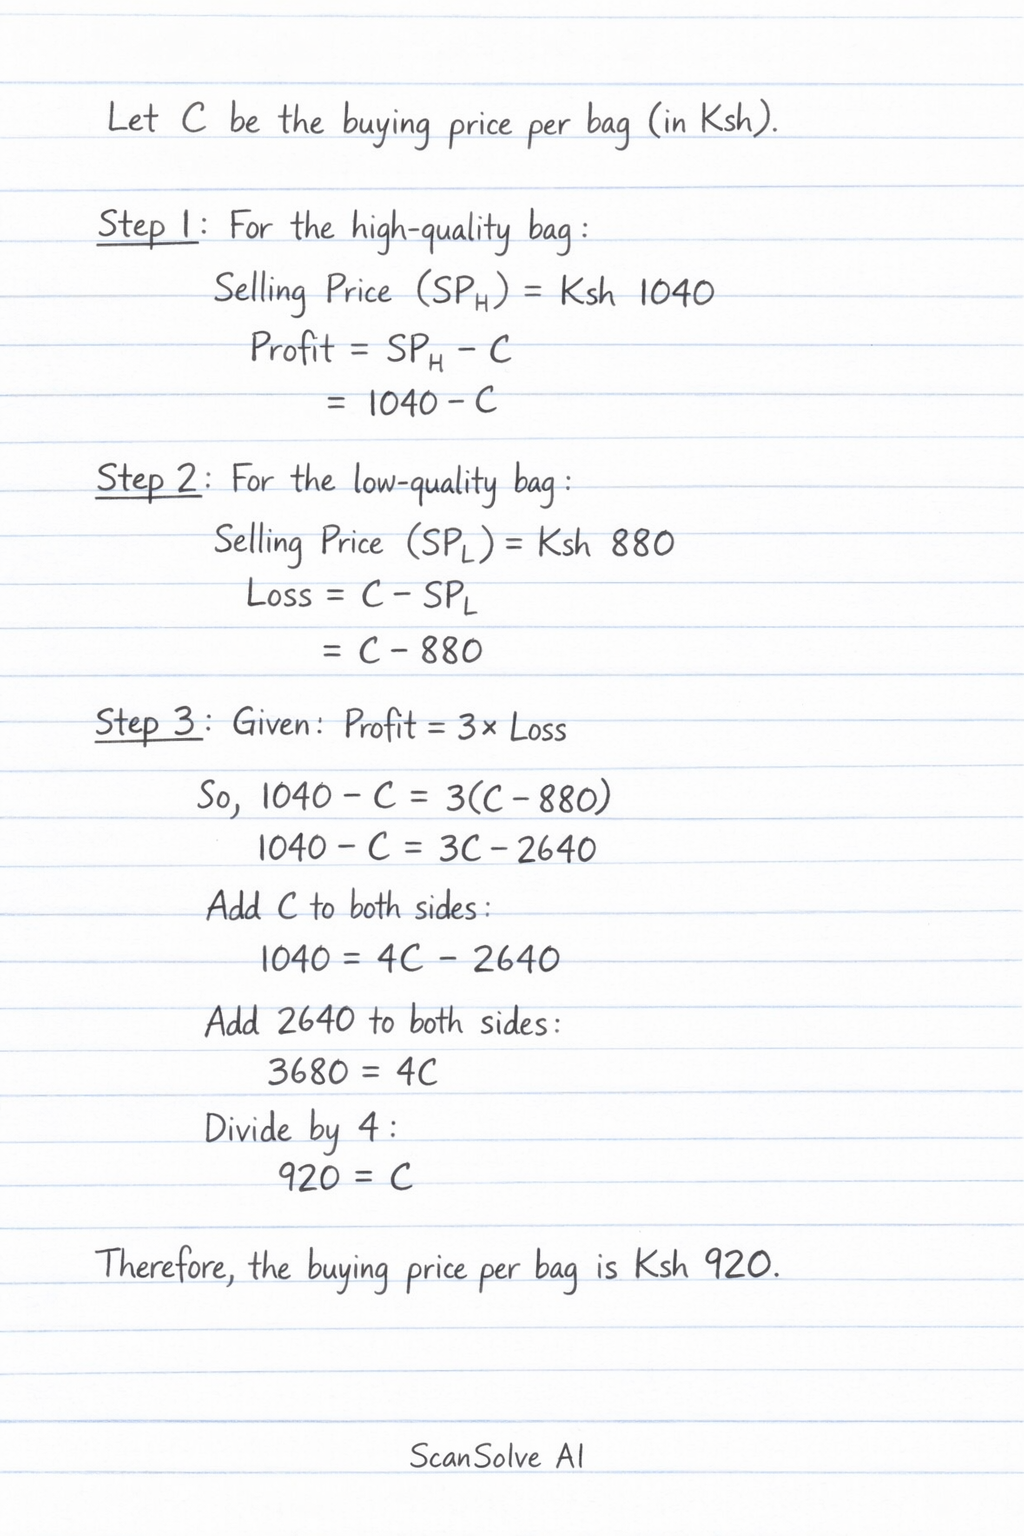 Let C be the buying price per bag (in Ksh).
Step 1: For the high-quality bag:
Selling Price (SP_H) = Ksh 1040
Profit = SP_H - C
= 1040 - C
Step 2: For the low-quality bag:
Selling Price (SP_L) = Ksh 880
Loss = C - SP_L
= C - 880
Step 3: Given: Profit = 3× Loss
So, 1040 - C = 3(C - 880)
1040 - C = 3C - 2640
Add C to both sides:
1040 = 4C - 2640
Add 2640 to both sides:
3680 = 4C
Divide by 4:
920 = C
Therefore, the buying price per bag is Ksh 920.
ScanSolve AI